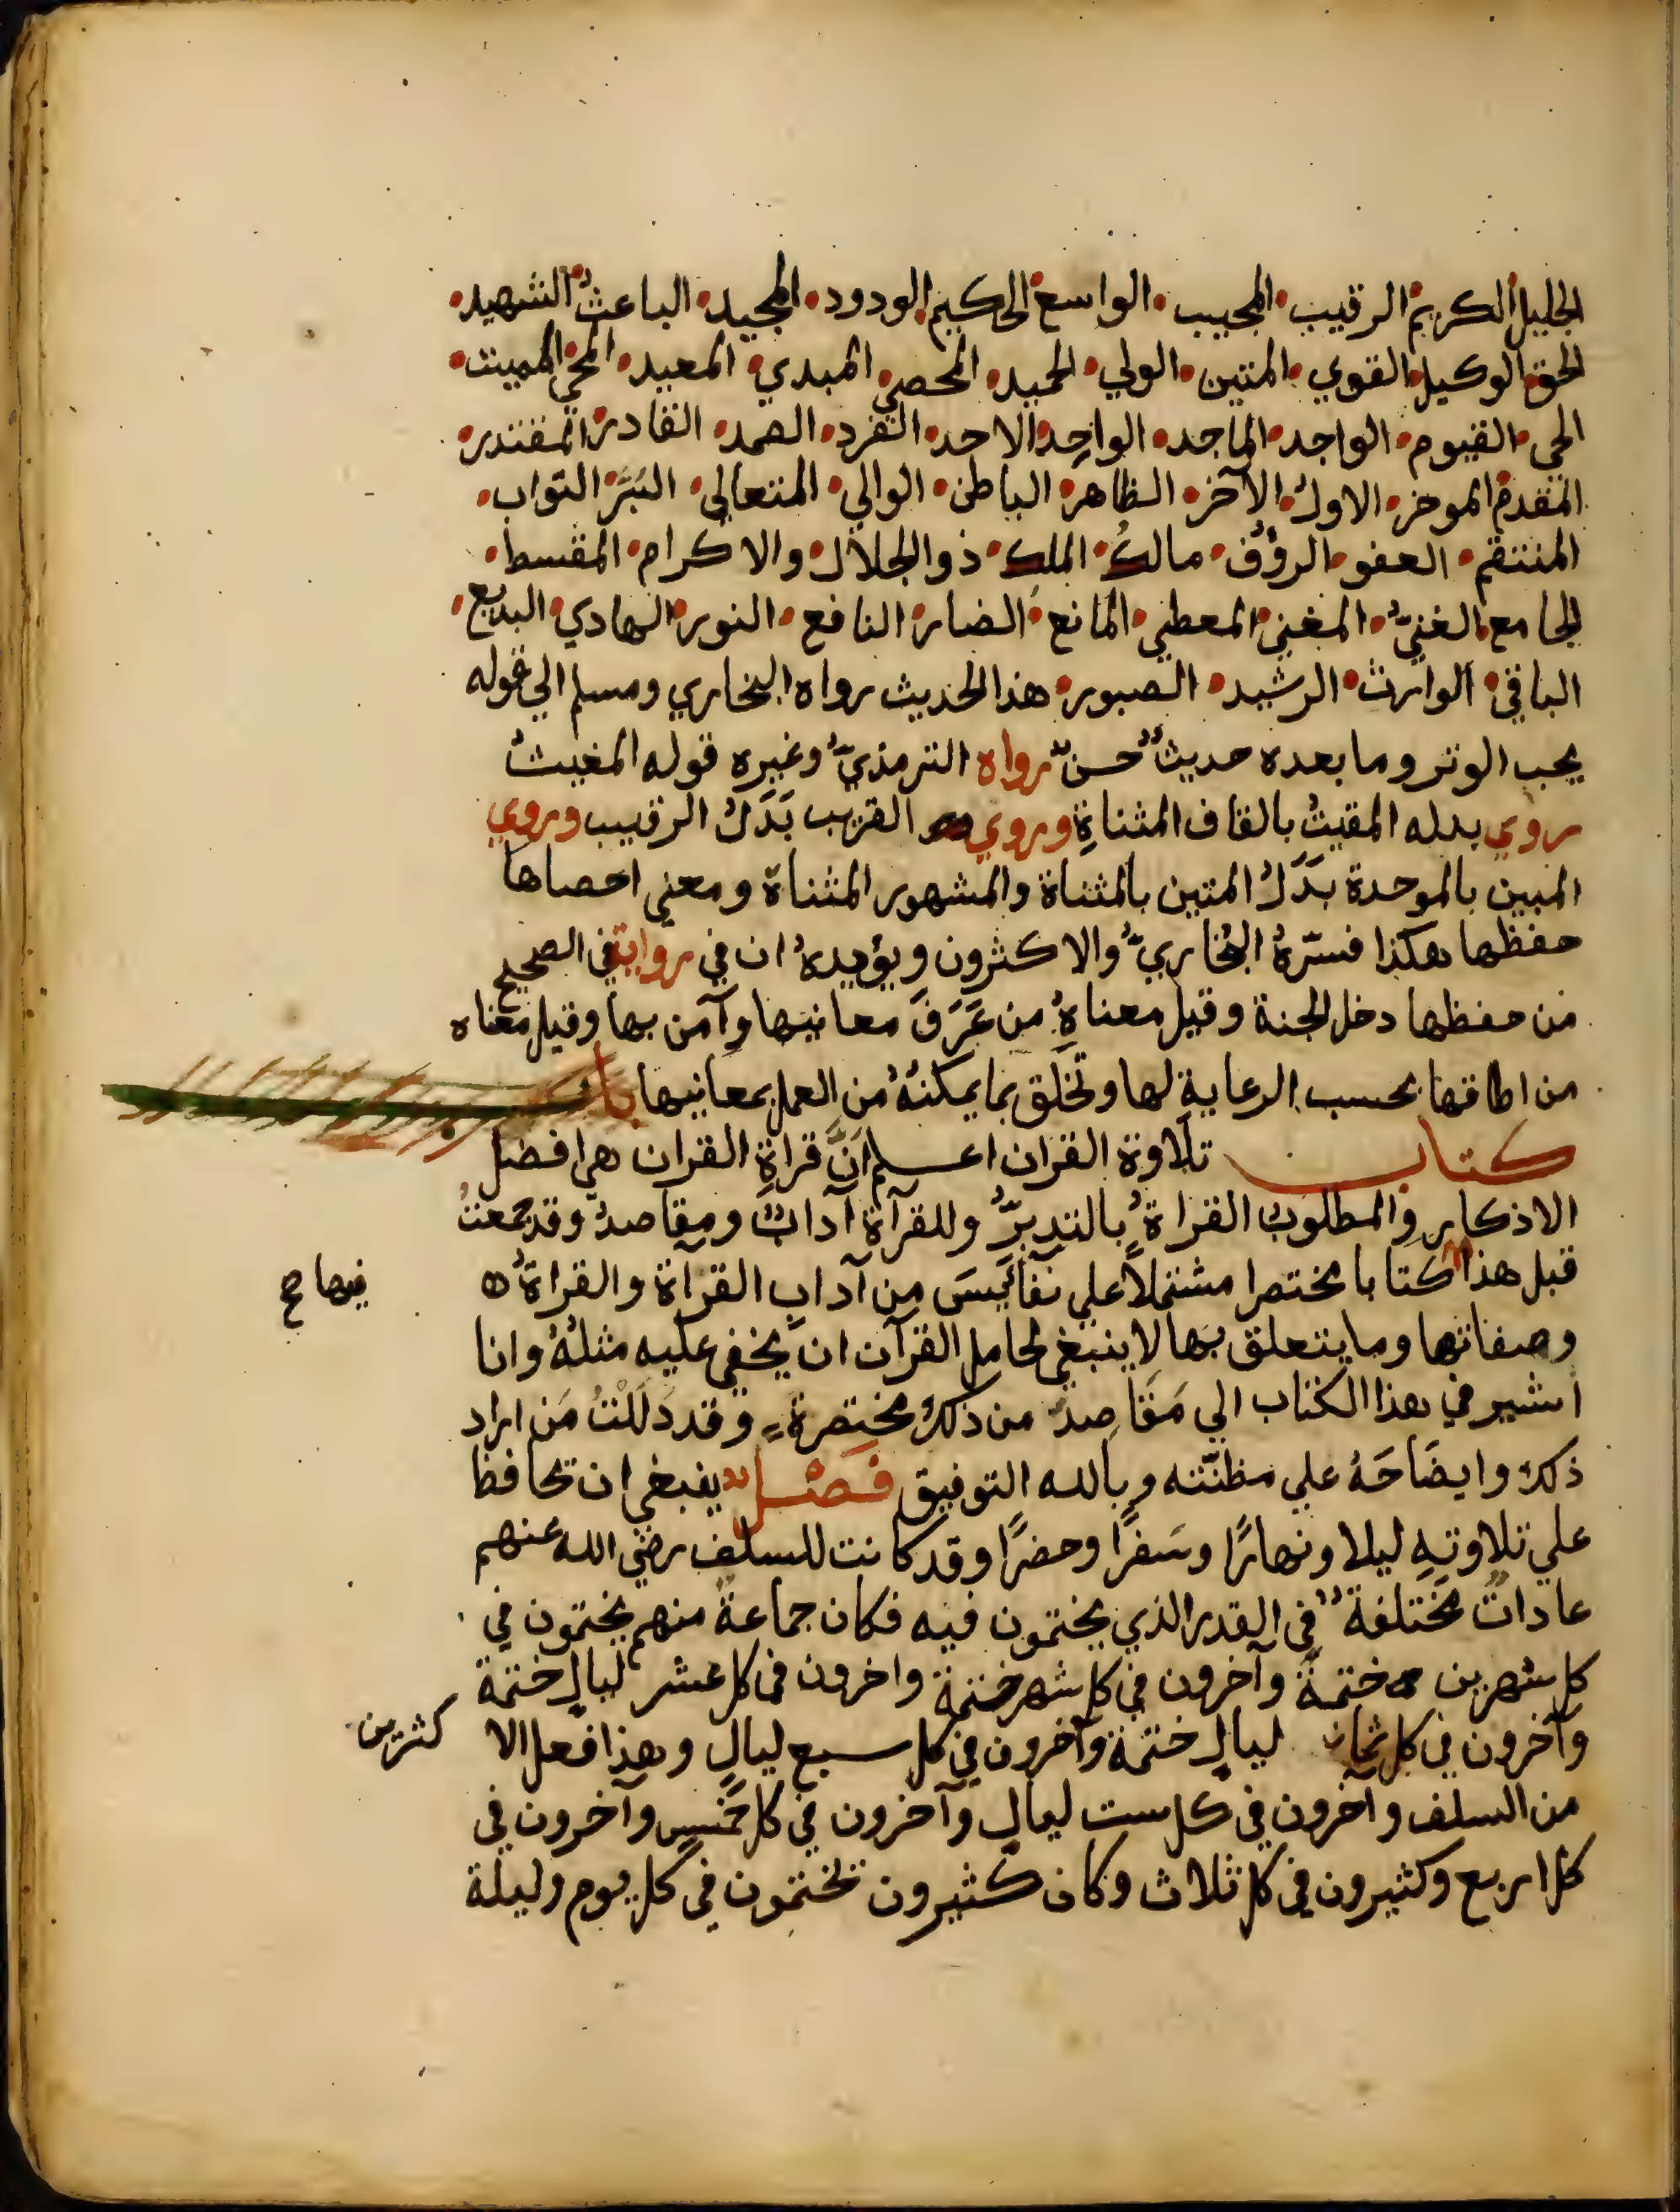 الجليل الكريم الرقيب المجيب الواسع الحكيم الودود المجيد الباعثُ الشهيد
الحق الوكيل القوي المتين الولي الحميد المحصي المبدي المعيد المحي المميت
الحي القيوم الواجد الماجد الواحِد الاحد الفرد الصمد القادر المقتدر
المقدم الموخر الاول الآخر الظاهر الباطن الوالي المتعالي البَرَّ التواب
المنتقم العفو الروؤف مالكُ الملك ذو الجلال والاكرام المقسط
الجامع الغنيّ المغني المعطي المانع الضار النافع النور الهادي البديع
الباقي الوارث الرشيد الصبور هذا الحديث رواه البخاري ومسلم الي قوله
يحب الوتر وما بعده حديثٌ حسنٌ رواه الترمذيّ وغيره قوله المغيث
روي بدله المقيتُ بالقاف المثناةِ وروي القريب بَدَل الرقيب وروي
المبين بالموحدة بدَل المتين بالمثناة والمشهور المثناة ومعني احصاها
حفظها هكذا فسّرهُ البُخاريّ والاكثرون ويؤيده ان في رواية في الصحيح
من حفظها دخل الجنة وقيل معناهُ من عَرَفَ معانيها وآمن بها وقيل معناه
من اطاقها بحسب الرعاية لها وتخلق بما يمكنهُ من العمل بمعانيها باب
كتاب تلاوة القران اعلم انَّ قراةِ القران هي افضل
الاذكار والمطلوب القراةُ بالتدبرُّ وللقرآة آدابٌ ومقاصدُ وقد جمعتُ
قبل هذا كتابا مختصرا مشتملًا علي نفائِسَ من آداب القرآة والقراةُ ه
فيها ح
وصفاتها وما يتعلق بها لا ينبغي لحامل القرآن ان يخفي عليه مثلُهُ وانا
اشير في هذا الكتاب الي مَقاصدَ من ذلك مختصرةٍ وقد دَلَلْتُ مَن اراد
ذلك وايضَاحَهُ علي مظنّته وبالله التوفيق فَصْل ينبغي ان تحافظ
علي تلاوتهِ ليلا ونهارًا وسَفرًا وحضرًا وقد كانت للسلف رضي الله عنهم
عاداتٌ مختلفة في القدر الذي يختمون فيه فكان جماعةُ منهم يختمون في
كل شهرين ختمةً وآخرون في كل شهر ختمة واخرون في كل عشر ليالٍ ختمة
وآخرون في كل ثمان ليالٍ ختمة وآخرون في كل سبع ليالٍ وهذا فعل الا
كثرين
من السلف وآخرون في كل ست ليالٍ وآخرون في كل خمسٍ وآخرون في
كل اربع وكثيرون في كل ثلاث وكان كثيرون تختمون في كل يوم وليلة